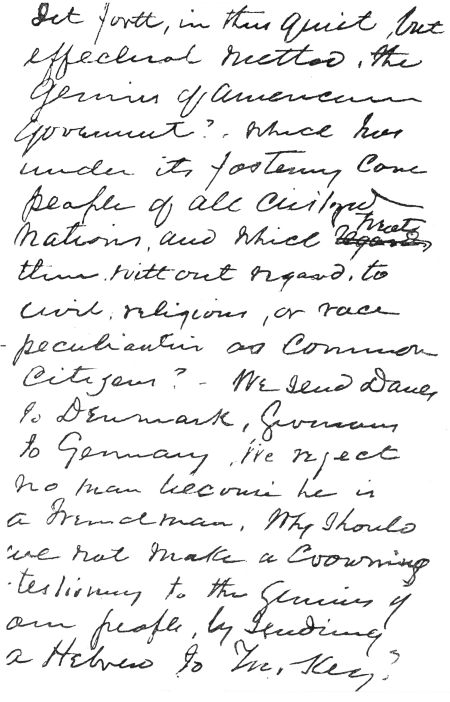 set forth, in this quiet, but
effectual method, the
Genius of American
Government? - which has
under its fostering care
people of all civilized
Nations, and which treats
them without regard to
civil, religious, or race
peculiarities as common
Citizens? - We send Danes
to Denmark, Germans
to Germany. We reject
no man because he is
a Frenchman. Why should
we not make a crowning
testimony to the Genius of
our people, by sending
a Hebrew to Turkey?